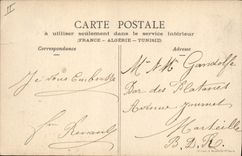 II
CARTE POSTALE
à utiliser seulement dans le service intérieur
(FRANCE - ALGÉRIE - TUNISIE)
Correspondance
Adresse
Je vous embrasse
Renaud
Mr Mme Gandolfe
Bar des Platanes
Avenue
Marseille
B. D. R.